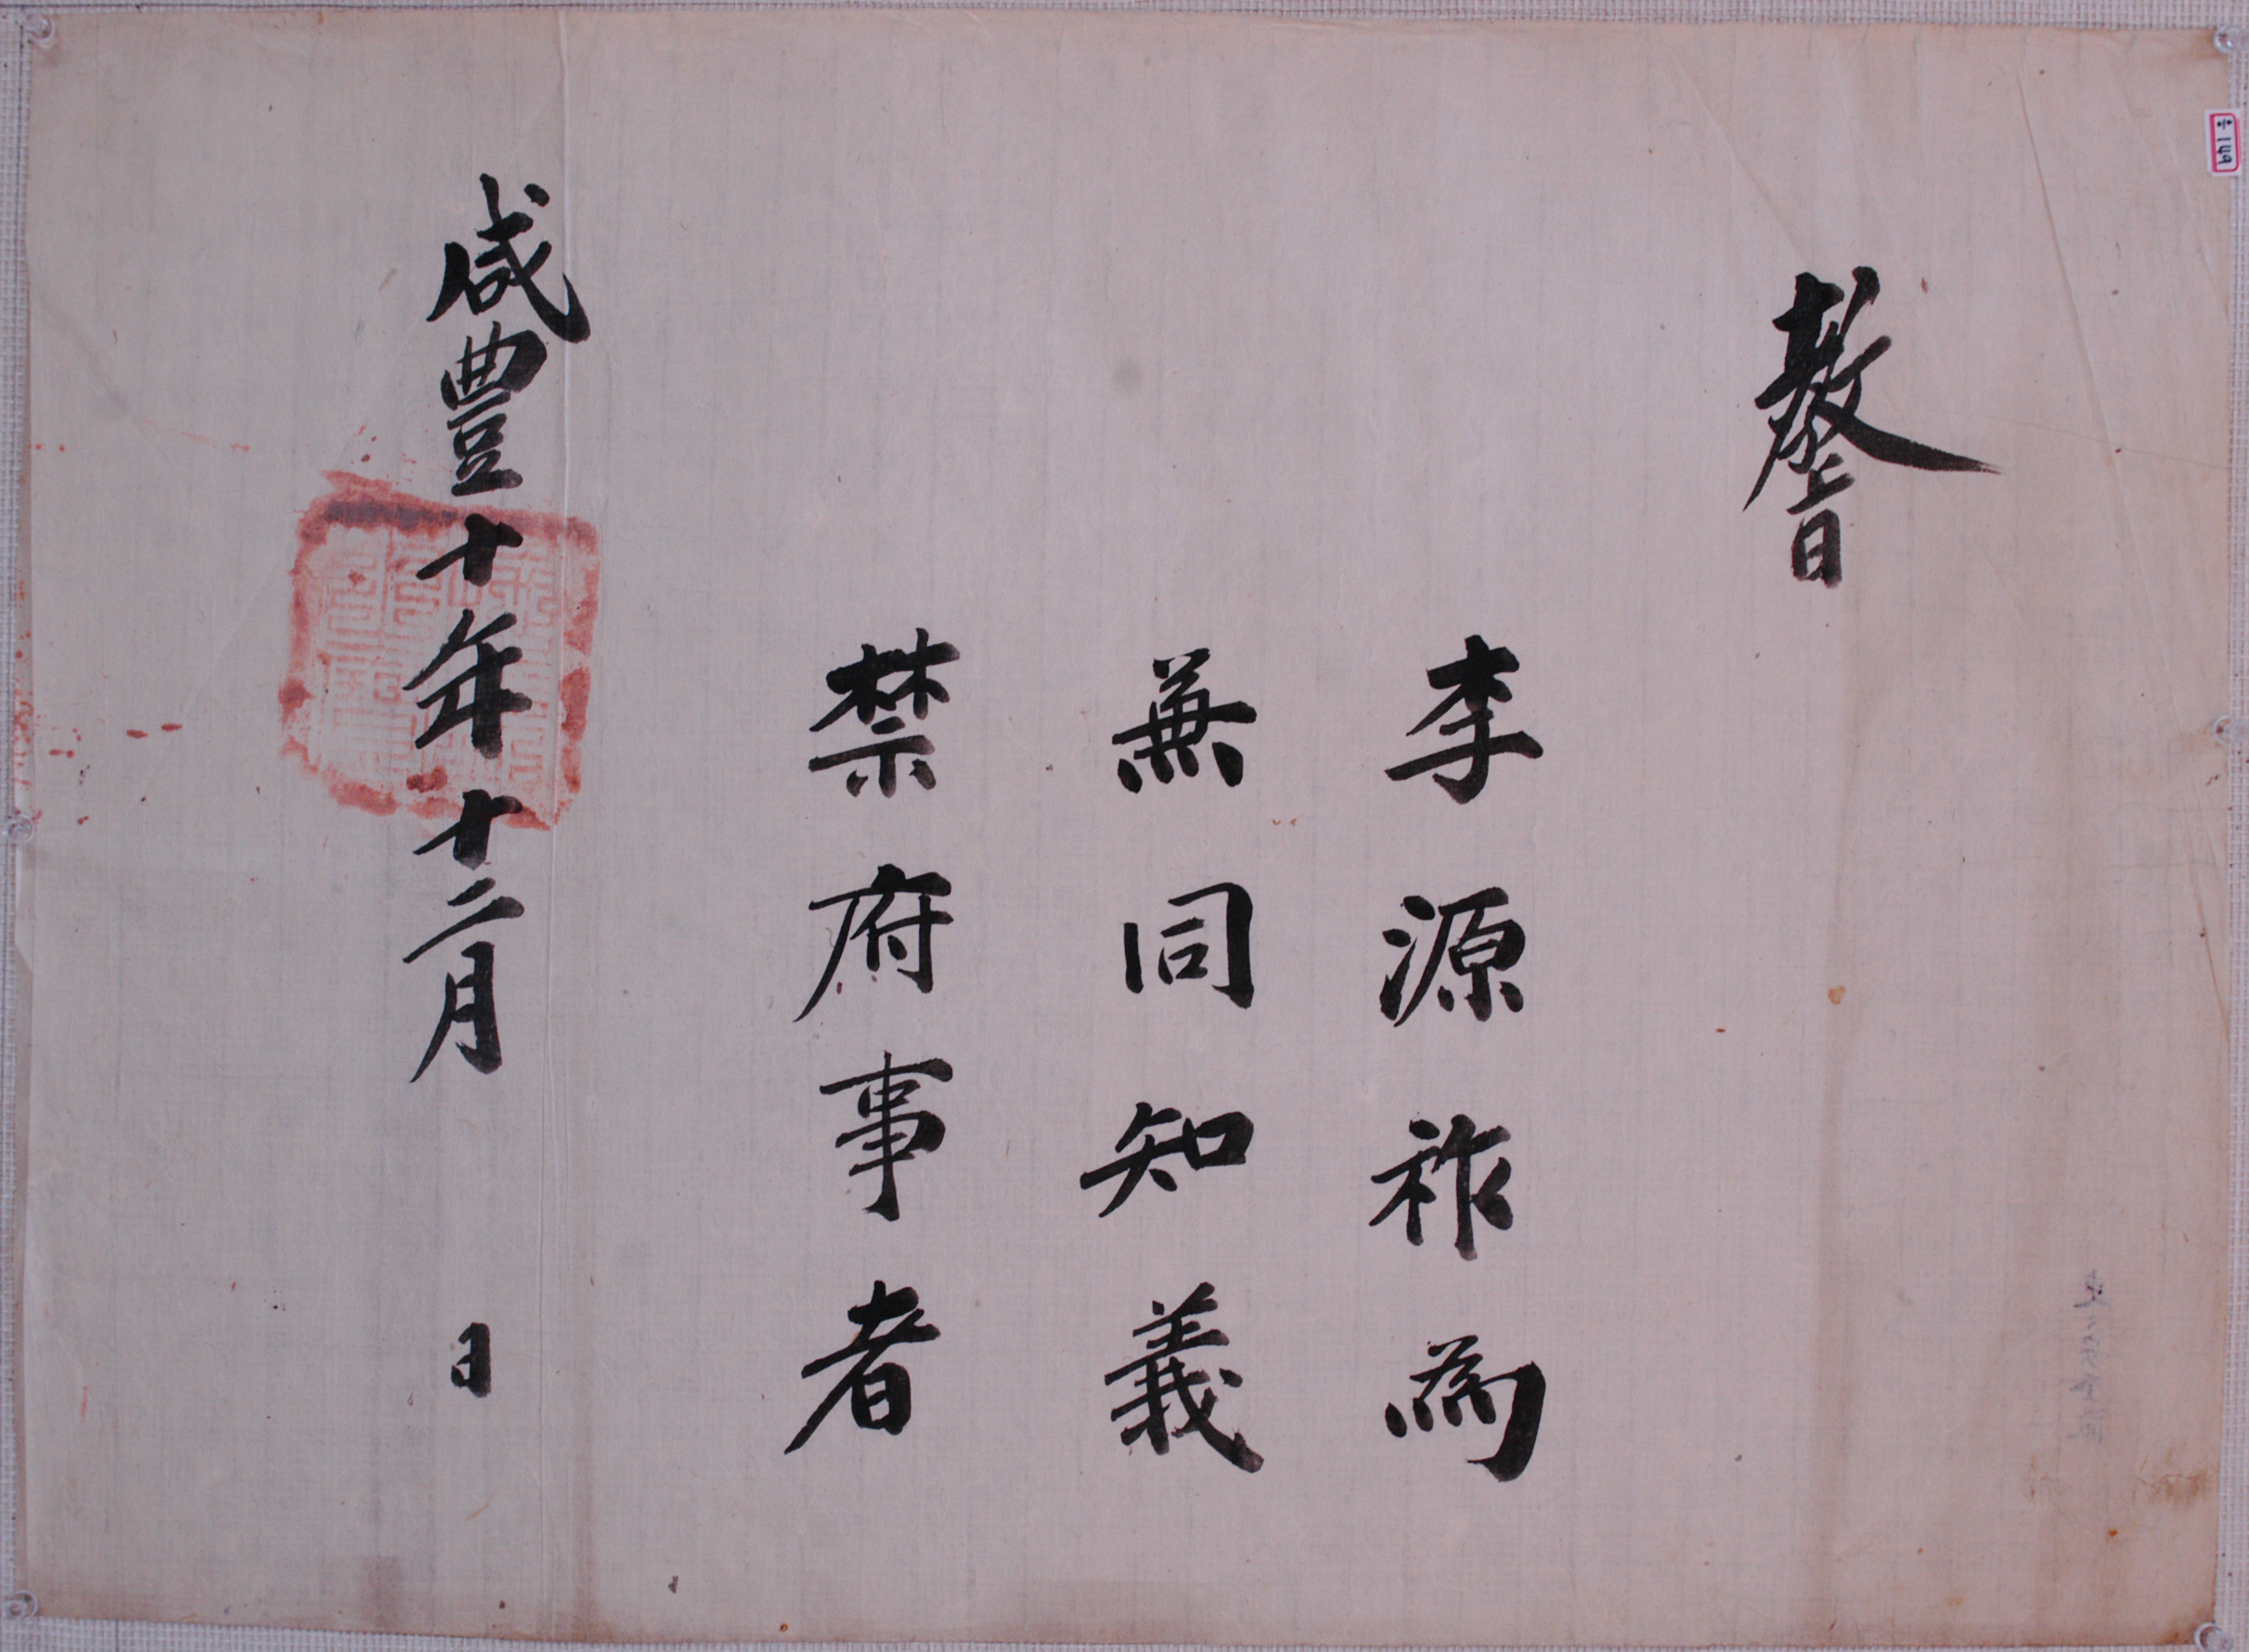 教旨
李源祚為
兼同知義
禁府事者
咸豊十年十二月 日